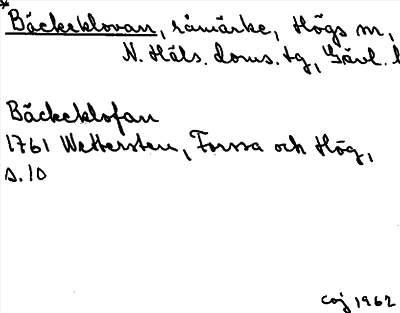 *Bäckeklovan, råmärke, Högs sn,
N. Häls. doms. tg, Gävl. l
Bäckeklofan
1761 Wettersten, Forssa och Hög,
s. 10
coj 1962